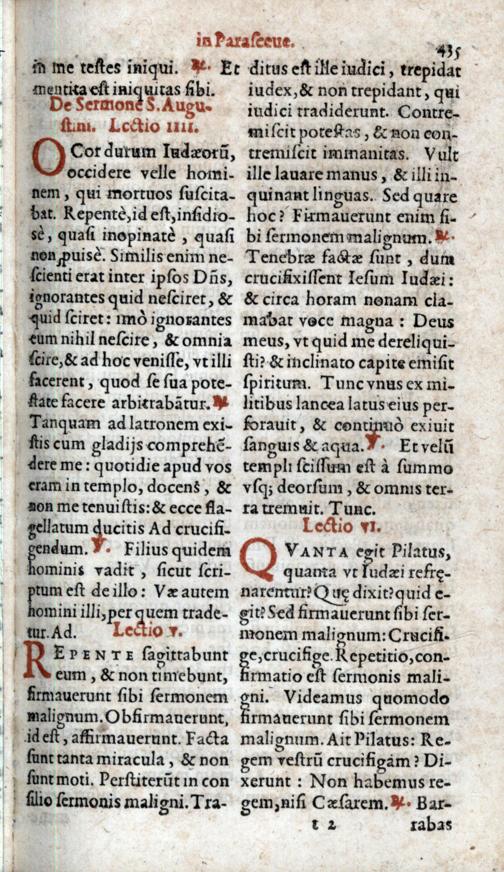 in Parasceue.
435
in me testes iniqui. ℟. Et
mentita est iniquitas sibi.
De Sermone S. Augu-
stini. Lectio IIII.
O Cor durum Iudæorū,
occidere velle homi-
nem, qui mortuos suscita-
bat. Repentè, id est, insidio-
sè, quasi inopinatè, quasi
non puisè. Similis enim ne-
scienti erat inter ipsos Dñs,
ignorantes quid nesciret, &
quid sciret: imò ignorantes
eum nihil nescire, & omnia
scire, & ad hoc venisse, vt illi
facerent, quod se sua pote-
state facere arbitrabātur. ℟.
Tanquam ad latronem exi-
stis cum gladijs comprehē-
dere me: quotidie apud vos
eram in templo, docens, &
non me tenuistis: & ecce fla-
gellatum ducitis Ad crucifi-
gendum. ℣. Filius quidem
hominis vadit, sicut scri-
ptum est de illo: Væ autem
homini illi, per quem trade-
tur. Ad. Lectio v.
REPENTE sagittabunt
eum, & non timebunt,
firmauerunt sibi sermonem
malignum. Obfirmauerunt,
id est, affirmauerunt. Facta
sunt tanta miracula, & non
sunt moti. Perstiterūt in con
silio sermonis maligni. Tra-
ditus est ille iudici, trepidat
iudex, & non trepidant, qui
iudici tradiderunt. Contre-
miscit potestas, & non con-
tremiscit immanitas. Vult
ille lauare manus, & illi in-
quinant linguas. Sed quare
hoc? Firmauerunt enim si-
bi sermonem malignum. ℟.
Tenebræ factæ sunt, dum
crucifixissent Iesum Iudæi:
& circa horam nonam cla-
mabat voce magna: Deus
meus, vt quid me dereliqui-
sti? & inclinato capite emisit
spiritum. Tunc vnus ex mi-
litibus lancea latus eius per-
forauit, & continuò exiuit
sanguis & aqua. ℣. Et velū
templi scissum est à summo
vsq; deorsum, & omnis ter-
ra tremuit. Tunc.
Lectio VI.
QVANTA egit Pilatus,
quanta vt Iudæi refrę-
narentur? Quę dixit? quid e-
git? Sed firmauerunt sibi ser-
monem malignum: Crucifi-
ge, crucifige. Repetitio, con-
firmatio est sermonis mali-
gni. Videamus quomodo
firmauerunt sibi sermonem
malignum. Ait Pilatus: Re-
gem vestrū crucifigam? Di-
xerunt: Non habemus re-
gem, nisi Cæsarem. ℟. Bar-
t 2
rabas